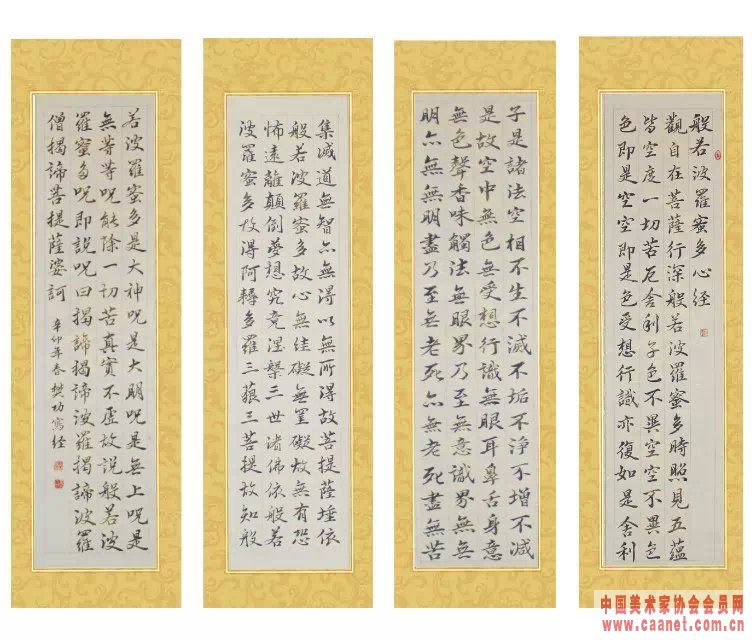 般若波羅蜜多心經
觀自在菩薩行深般若波羅蜜多時照見五蘊
皆空度一切苦厄舍利子色不異空空不異色
色即是空空即是色受想行識亦復如是舍利
子是諸法空相不生不滅不垢不淨不增不減
是故空中無色無受想行識無眼耳鼻舌身意
無色聲香味觸法無眼界乃至無意識界無無
明亦無無明盡乃至無老死亦無老死盡無苦
集滅道無智亦無得以無所得故菩提薩埵依
般若波羅蜜多故心無罣礙無罣礙故無有恐
怖遠離顛倒夢想究竟涅槃三世諸佛依般若
波羅蜜多故得阿耨多羅三藐三菩提故知般
若波羅蜜多是大神咒是大明咒是無上咒是
無等等咒能除一切苦真實不虛故說般若波
羅蜜多咒即說咒曰揭諦揭諦波羅揭諦波羅
僧揭諦菩提薩婆訶 辛卯年春樊功寫經
中国美术家协会会员网
www.caanet.com.cn